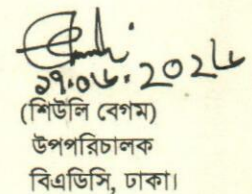 ২৭.০৮.২০২৮
(শিউলি বেগম)
উপপরিচালক
বিএডিসি, ঢাকা।